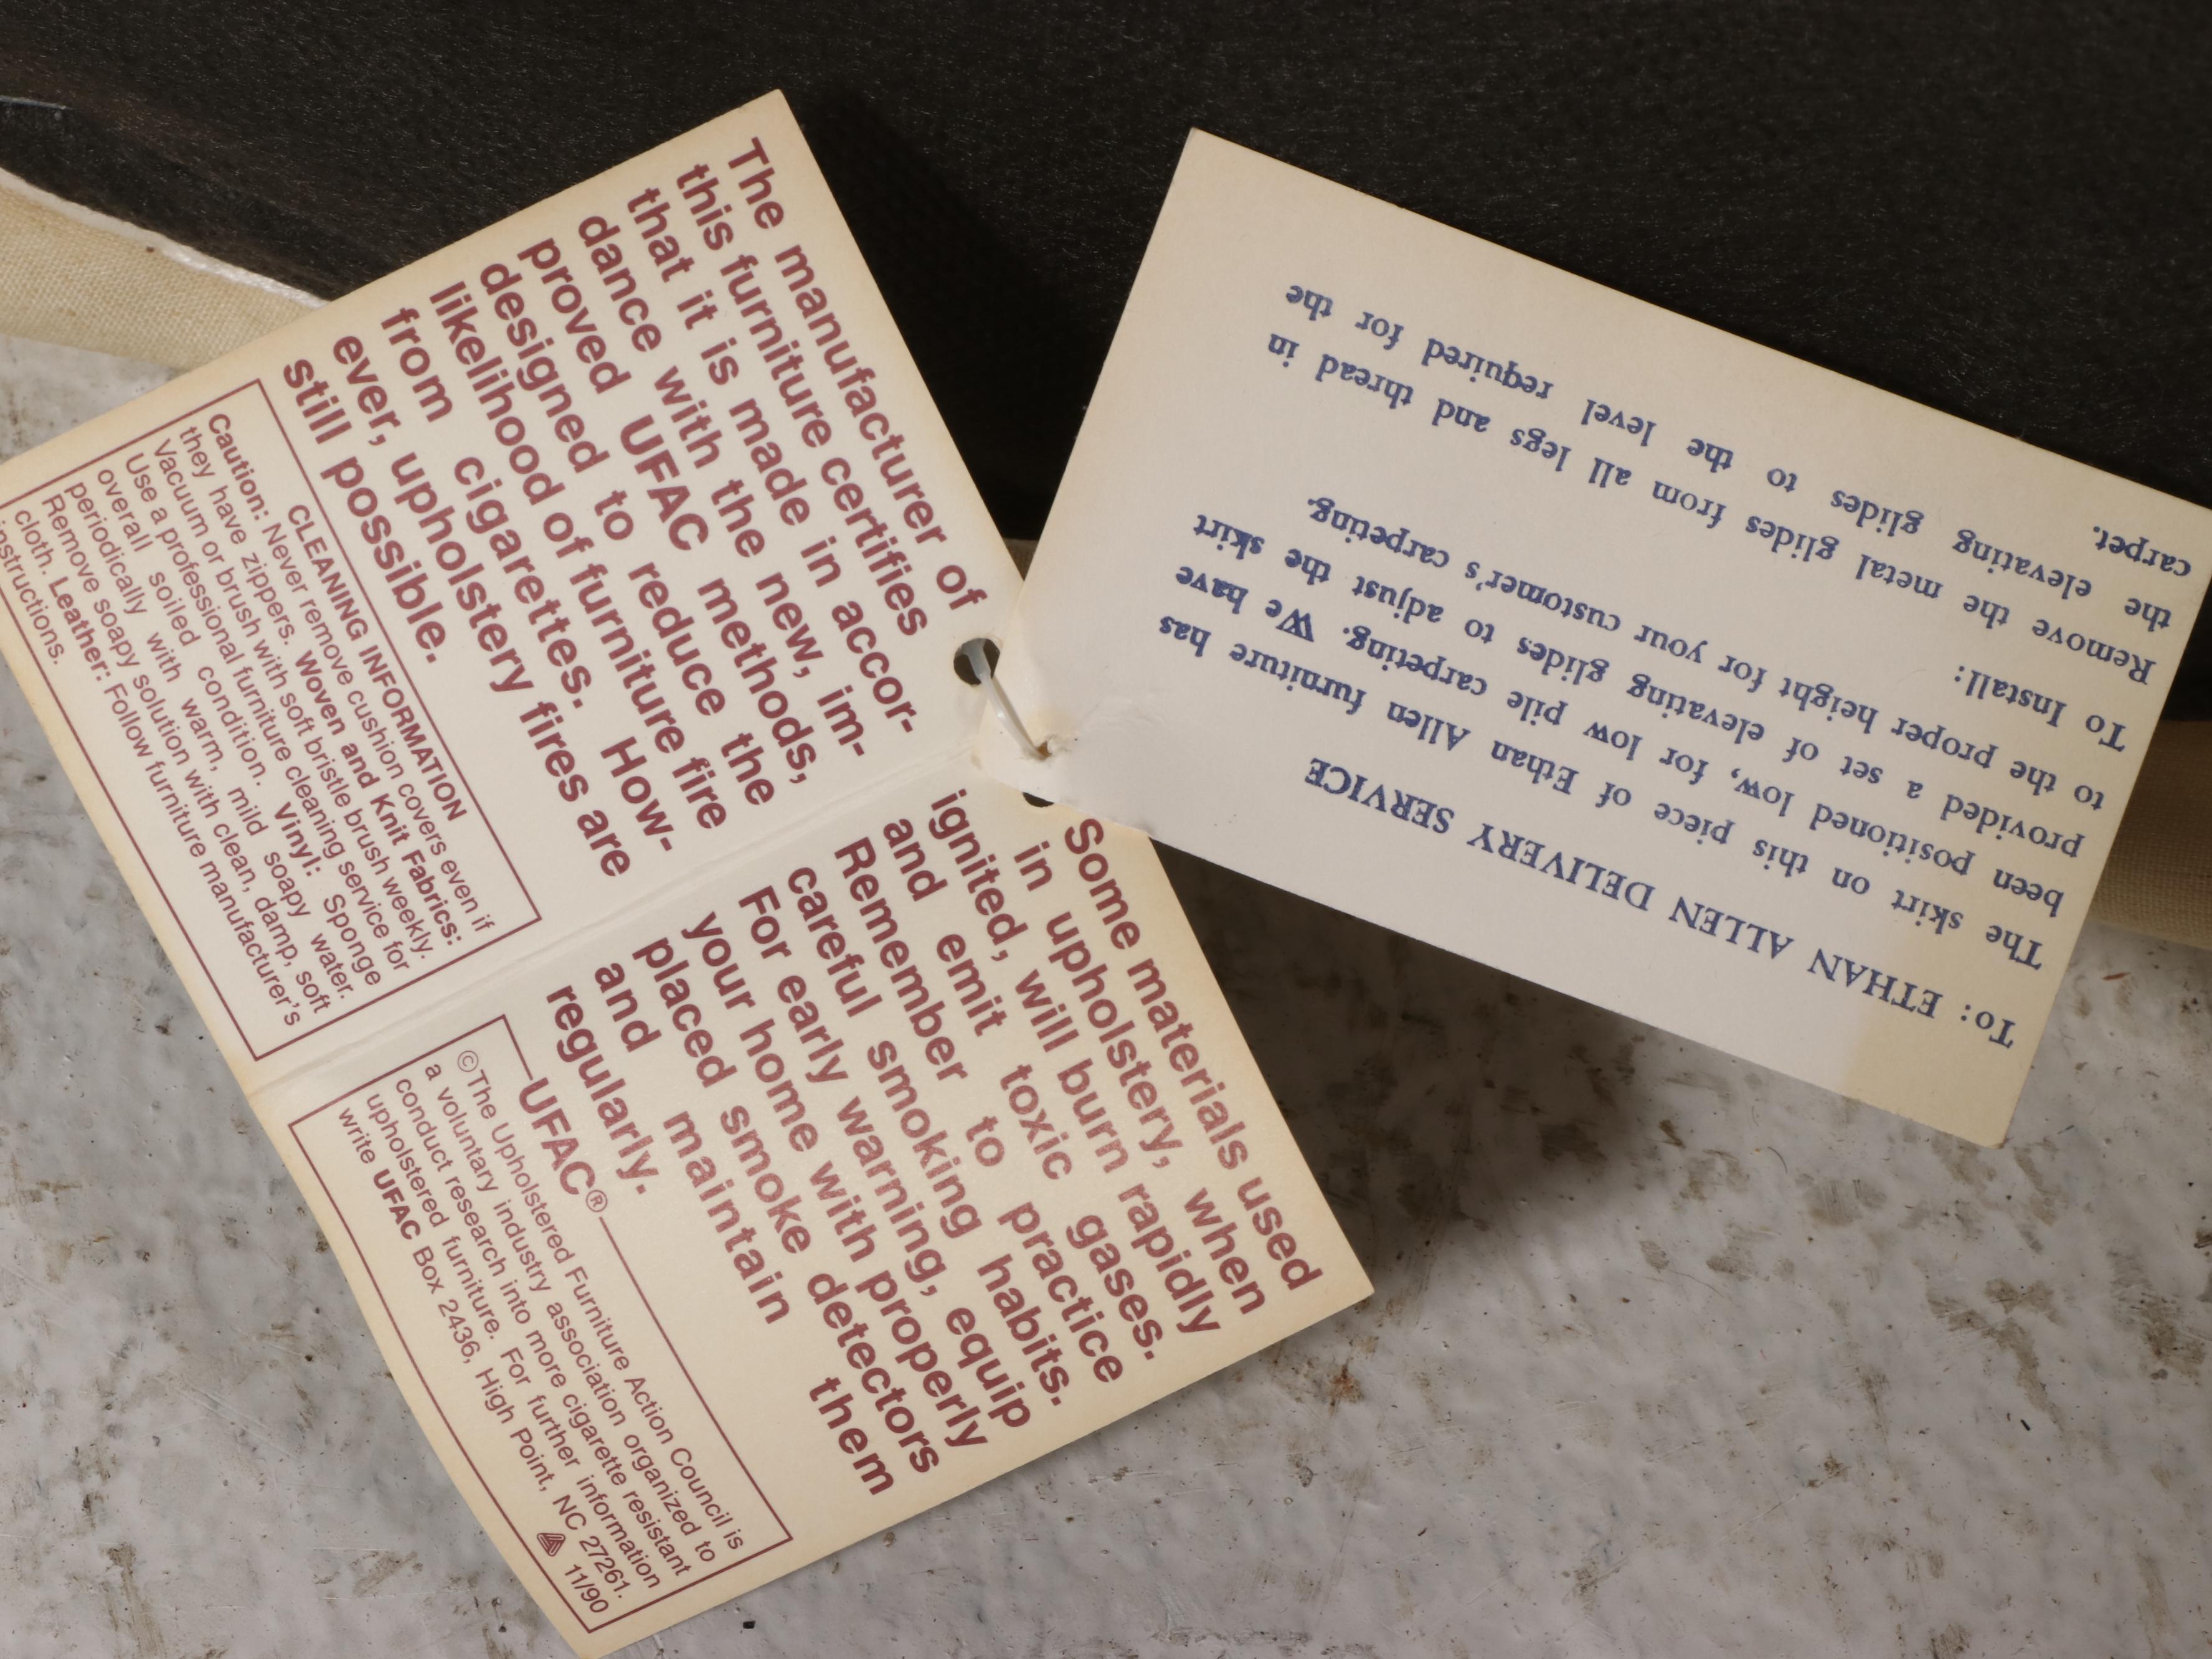 The manufacturer of
this furniture certifies
that it is made in accor-
dance with the new, im-
proved UFAC methods,
designed to reduce the
likelihood of furniture fire
from cigarettes. How-
ever, upholstery fires are
still possible.
CLEANING INFORMATION
Caution: Never remove cushion covers even if
they have zippers. Woven and Knit Fabrics:
Vacuum or brush with soft bristle brush weekly.
Use a professional furniture cleaning service for
overall soiled condition. Vinyl: Sponge
periodically with warm, mild soapy water.
Remove soapy solution with clean, damp, soft
cloth. Leather: Follow furniture manufacturer's
instructions.
Some materials used
in upholstery, when
ignited, will burn rapidly
and emit toxic gases.
Remember to practice
careful smoking habits.
For early warning, equip
your home with properly
placed smoke detectors
and maintain them
regularly.
UFAC®
©The Upholstered Furniture Action Council is
a voluntary industry association organized to
conduct research into more cigarette resistant
upholstered furniture. For further information
write UFAC Box 2436, High Point, NC 27261.
11/90
To: ETHAN ALLEN DELIVERY SERVICE
The skirt on this piece of Ethan Allen furniture has
been positioned low, for low pile carpeting. We have
provided a set of elevating glides to adjust the skirt
to the proper height for your customer's carpeting.
To Install:
Remove the metal glides from all legs and thread in
the elevating glides to the level required for the
carpet.